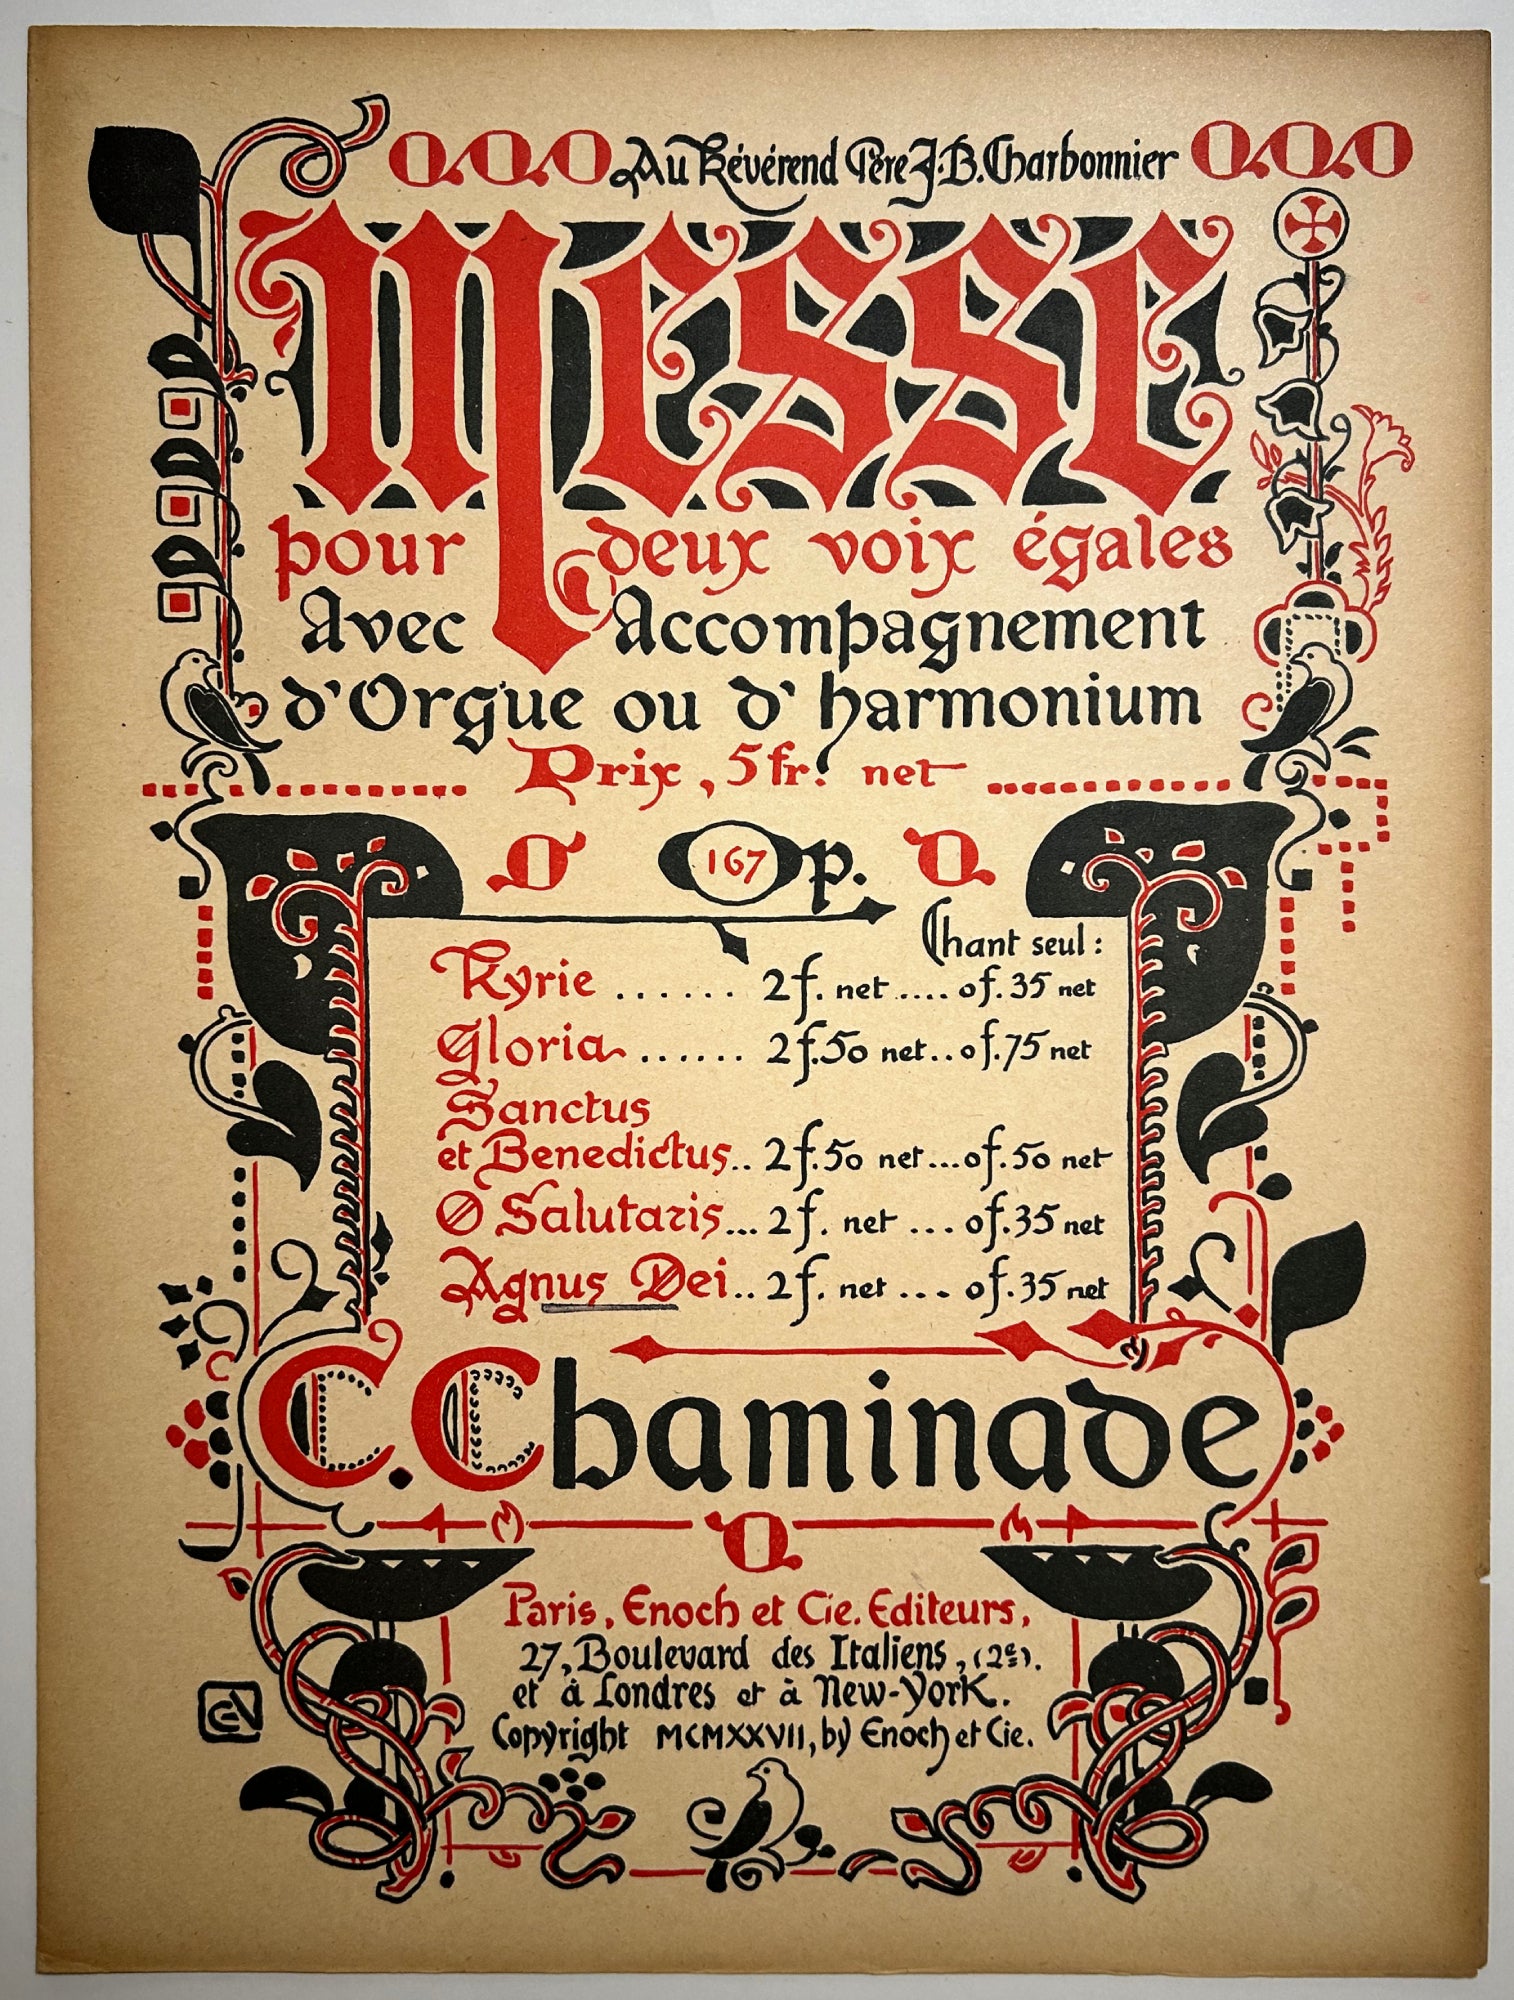 Au Révérend Père J.B. Charbonnier
Messe
pour deux voix égales
Avec Accompagnement
d'Orgue ou d'harmonium
Prix, 5 fr. net
Op. 167
Chant seul :
Kyrie ...... 2f. net .... 0f.35 net
Gloria ...... 2f.50 net .. 0f.75 net
Sanctus
et Benedictus .. 2f.50 net ... 0f.50 net
O Salutaris ... 2f. net ... 0f.35 net
Agnus Dei .. 2f. net ... 0f.35 net
C. Chaminade
Paris, Enoch et Cie. Editeurs,
27, Boulevard des Italiens, (2e).
et à Londres et à New-York.
Copyright MCMXXVII, by Enoch et Cie.